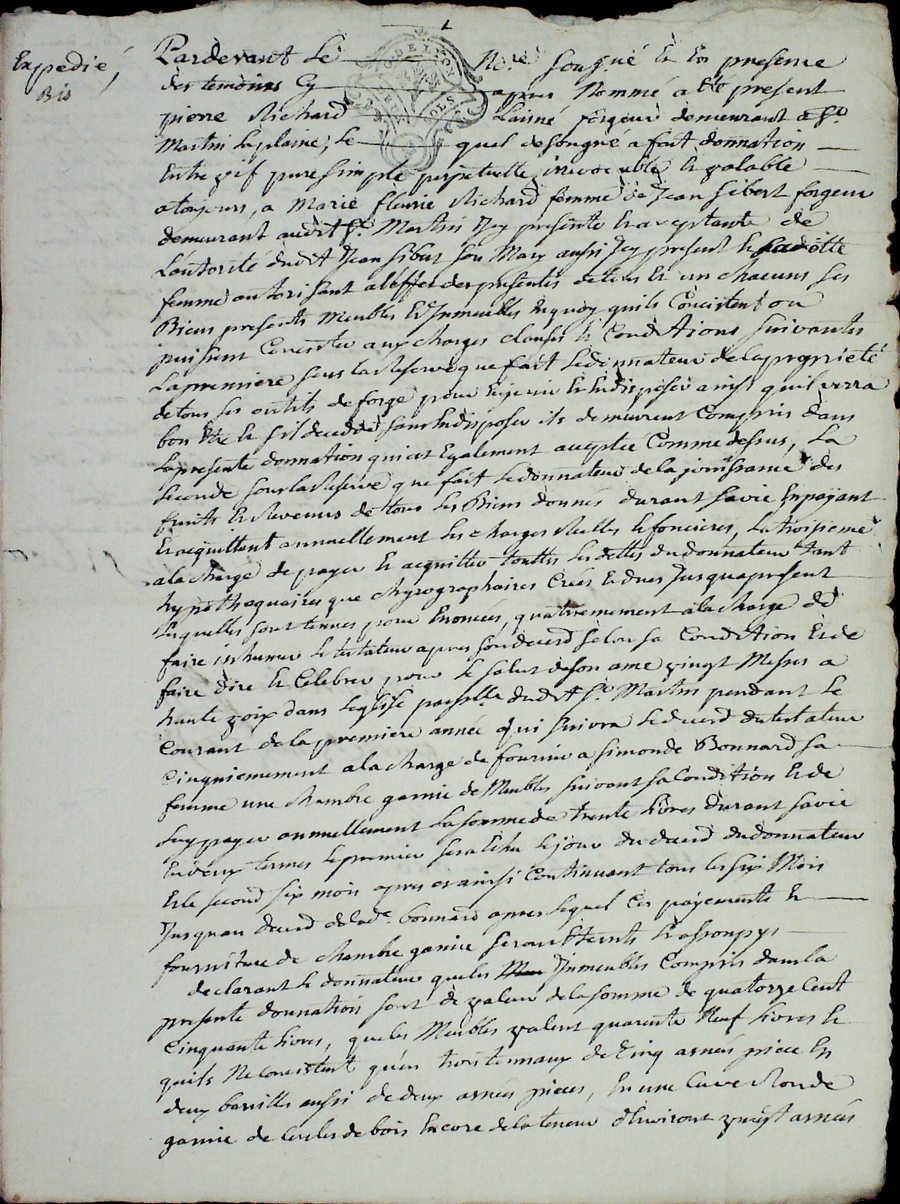 Expedié,
Bis
Pardevant Le No.re sousg.né & En presence
des temoins Cy apres Nommé a été present
pierre Richard Laisné forgeur demeurant a St.
Martin Laplaine, Le quel de son gré a fait donnation
Entre vif pure simple perpetuelle irrevocable & valable
a toujours, a Marie fleurie Richard femme de Jean Sibert forgeur
demeurant audit St. Martin Icy presente & acceptante de
L'autorité dudit Jean Sibert son Mary aussi Icy present &
femme autorisant a l'effet des presentes de tous & un chacuns ses
Biens presents Meubles & Immeubles En quoy quils Concistent ou
puissent Concister aux charges clauses & Conditions suivantes
La premiere sous la Reserve que fait Le donnateur de la propriété
de tous ses outils de forge pour En jouir & En disposer ainsi quil verra
bon Etre & s'il decedde sans En disposer ils demeurent Compris dans
La presente donnation qui est Egalement acceptée Comme dessus, La
seconde sous la Reserve que fait Le donnateur de la jouissance des
fruits & Revenus de tous Les Biens donnés durant sa vie En payant
& acquittant annuellement Les charges Réelles & foncieres, La troisieme
a la charge de payer & acquitter touttes Les dettes du donnateur tant
hypothequaires que chyrographaires Crées & dues Jusqua present
Lesquelles sont tenues pour Enoncées, quatriemement a la charge de
faire inhumer Le testateur apres son deced selon sa Condition & de
faire dire & Celebrer pour Le salut de son ame vingt Messes a
haute voix dans Leglise paroisslle dudit St. Martin pendant Le
Courant de la premiere année qui suivra Le deced du testateur
Cinquiemement a la charge de fournir a Simonde Bonnard sa
femme une chambre garnie de Meubles suivant sa Condition & de
Luy payer annuellement La somme de trente Livres durant sa vie
En deux termes Le premier sera Echu Le jour du deced du donnateur
& Le second six mois apres & ainsi Continuant tous les six Mois
Jusquau deced de lad.e bonnard apres Lequel Ces payements &
fourniture de chambre garnie seront Eteints & assoupys
declarant Le donnateur que les Immeubles Compris dans la
presente donnation sont de valeur de la somme de quatorze Cent
Cinquante Livres, que les Meubles valent quarente Neuf Livres &
quils Ne Concistent qu'en trois tonnaux de Cinq anées piece En
deux barrilles aussi de deux anées pieces, En une Cuve Ronde
garnie de Cercles de bois Encore de la teneur d'Environt vingt anées